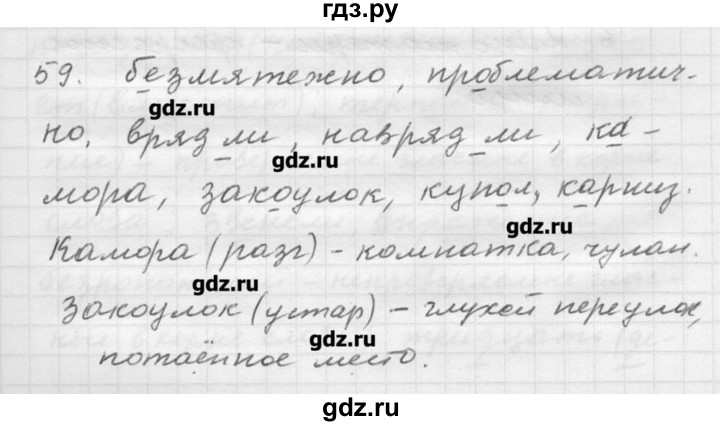 гдз.ру
59. безмятежно, проблематич-
gdz.ru
но, вряд ли, навряд ли, ка-
gdz.ru
мора, закоулок, купол, карниз.
gdz.ru
Камора (разг) - комнатка, чулан.
gdz.ru
Закоулок (устар) - глухой переулок,
gdz.ru
потаённое место.
gdz.ru